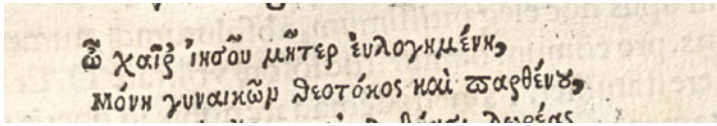 ὦ χαῖρ' ἰησοῦ μῆτερ ἐυλογημένη,
Μόνη γυναικῶν θεοτόκος καὶ παρθένος,
δωρέας